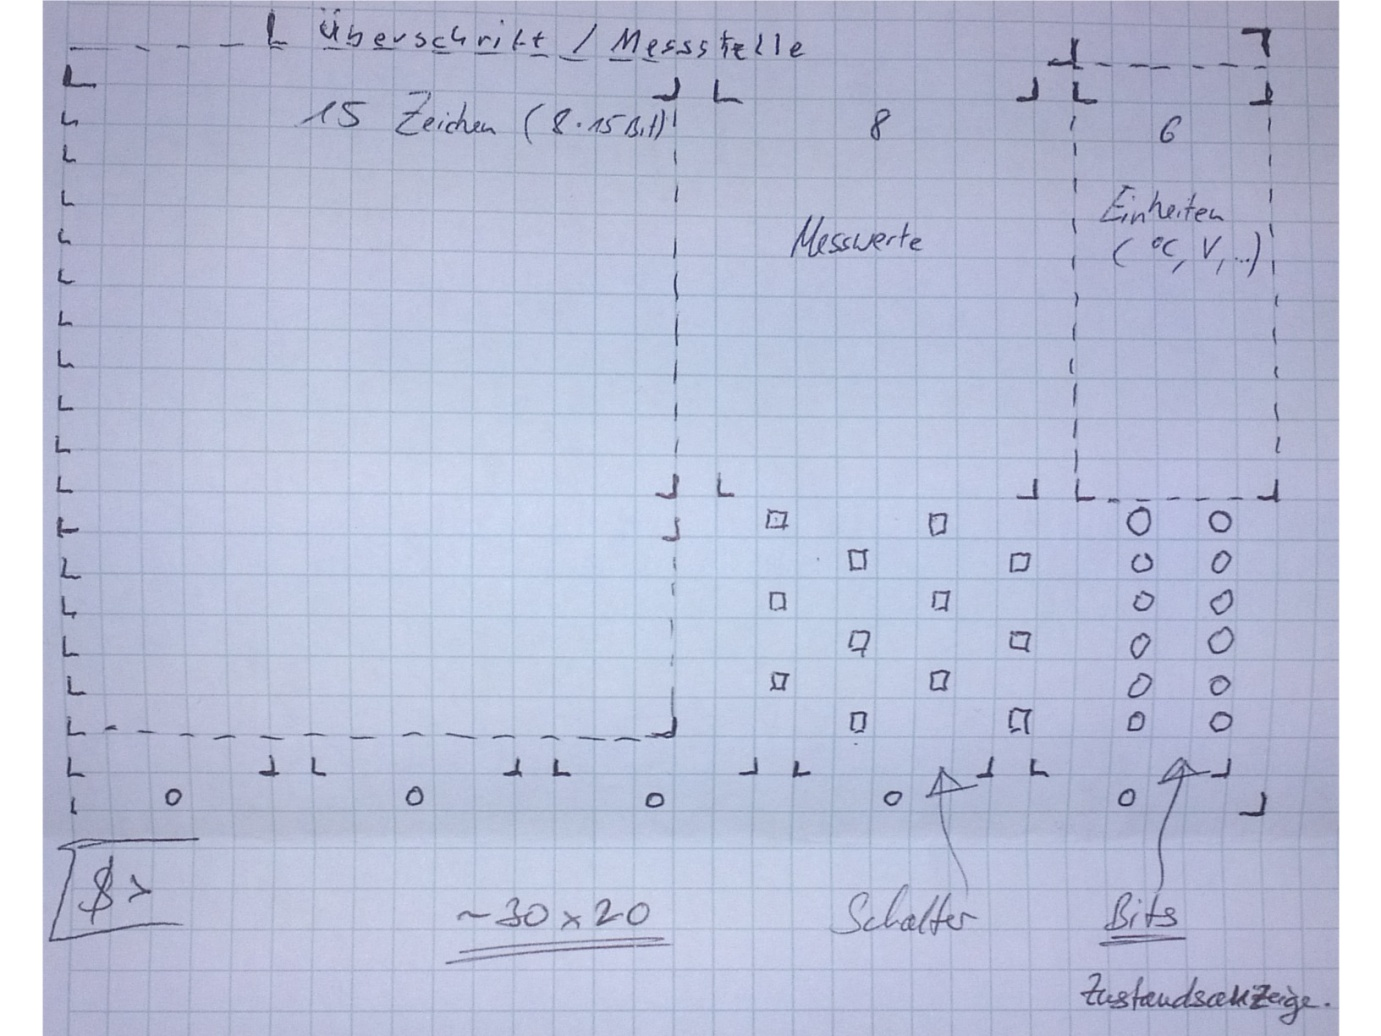 Überschrift / Messstelle
15 Zeichen (8·15 Bit)
8
6
Messwerte
Einheiten
(°C, V, ...)
$>
~30x20
Schalter
Bits
Zustandsanzeige.